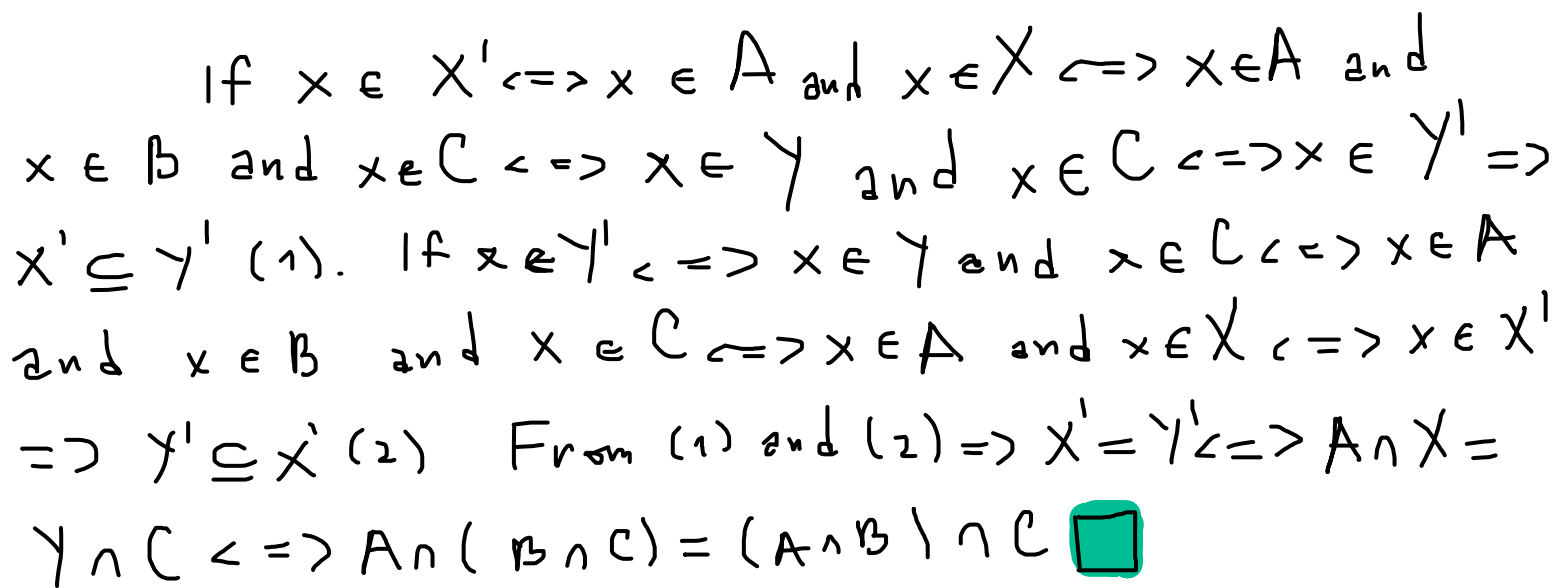 If x ∈ X' <=> x ∈ A and x ∈ X <=> x ∈ A and
x ∈ B and x ∈ C <=> x ∈ Y and x ∈ C <=> x ∈ Y' =>
X' ⊆ Y' (1). If x ∈ Y' <=> x ∈ Y and x ∈ C <=> x ∈ A
and x ∈ B and x ∈ C <=> x ∈ A and x ∈ X <=> x ∈ X'
=> Y' ⊆ X' (2) From (1) and (2) => X' = Y' <=> A ∩ X =
Y ∩ C <=> A ∩ (B ∩ C) = (A ∩ B) ∩ C □